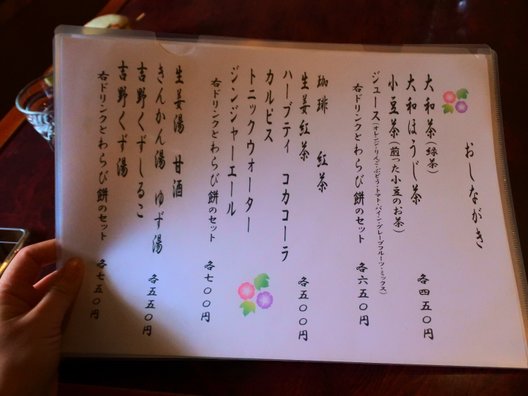 おしながき
大和茶（緑茶）
大和ほうじ茶
小豆茶（煎った小豆のお茶）
ジュース（オレンジ・りんご・ぶどう・トマト・パイン・グレープフルーツ・ミックス）
各四五〇円
右ドリンクとわらび餅のセット
各六五〇円
珈琲　紅茶
生姜紅茶
ハーブティ　コカコーラ
カルピス
トニックウォーター
ジンジャーエール
各五〇〇円
右ドリンクとわらび餅のセット
各七〇〇円
生姜湯　甘酒
きんかん湯　ゆず湯
吉野くずしるこ
吉野くず湯
各五五〇円
右ドリンクとわらび餅のセット
各七五〇円